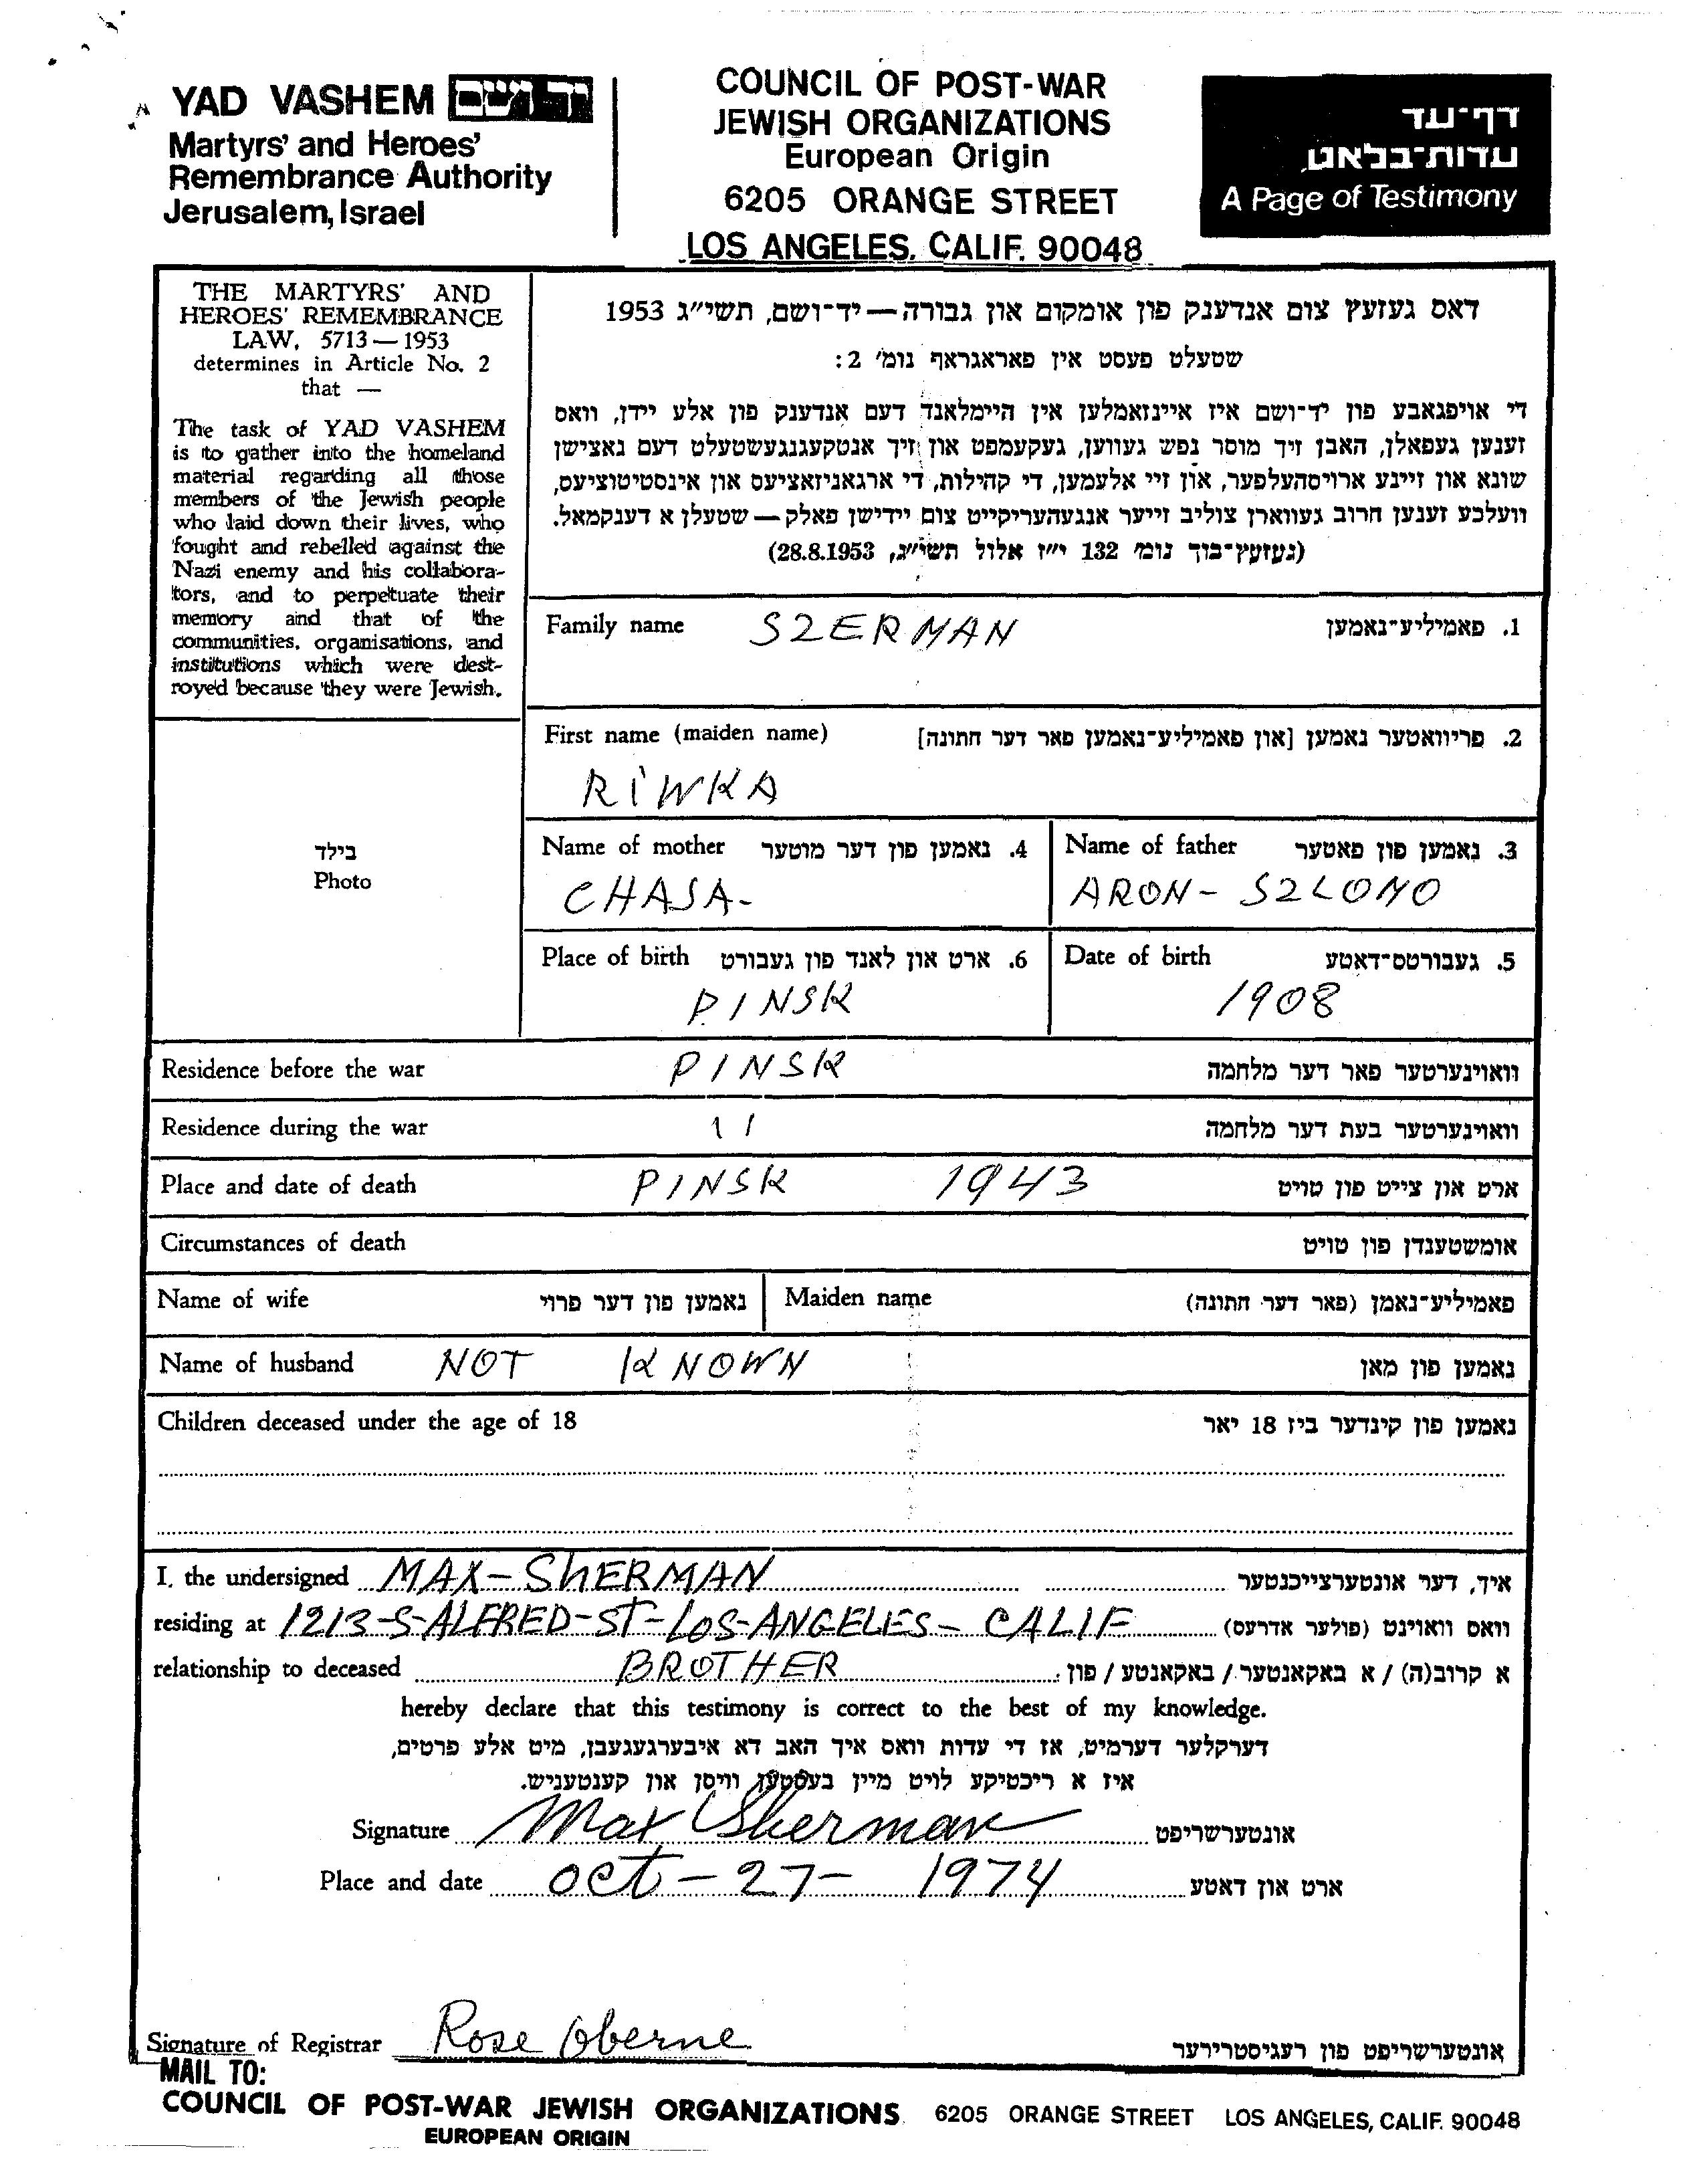 YAD VASHEM יד ושם
Martyrs' and Heroes'
Remembrance Authority
Jerusalem, Israel
COUNCIL OF POST-WAR
JEWISH ORGANIZATIONS
European Origin
6205 ORANGE STREET
LOS ANGELES, CALIF. 90048
דף־עד
עדות־בלאט
A Page of Testimony
THE MARTYRS' AND
HEROES' REMEMBRANCE
LAW, 5713—1953
determines in Article No. 2
that —
The task of YAD VASHEM
is to gather into the homeland
material regarding all those
members of the Jewish people
who laid down their lives, who
fought and rebelled against the
Nazi enemy and his collabora-
tors, and to perpetuate their
memory and that of the
communities, organisations, and
institutions which were dest-
royed because they were Jewish.
דאס געזעץ צום אנדענק פון אומקום און גבורה — יד־ושם, תשי״ג 1953
שטעלט פעסט אין פאראגראף נומ׳ 2:
די אויפגאבע פון יד־ושם איז איינזאמלען אין היימלאנד דעם אנדענק פון אלע יידן, וואס
זענען געפאלן, האבן זיך מוסר נפש געווען, געקעמפט און זיך אנטקעגנגעשטעלט דעם נאצישן
שונא און זיינע ארויסהעלפער, און זיי אלעמען, די קהילות, די ארגאניזאציעס און אינסטיטוציעס,
וועלכע זענען חרוב געווארן צוליב זייער אנגעהעריקייט צום יידישן פאלק — שטעלן א דענקמאל.
(געזעץ־בוך נומ׳ 132 י״ז אלול תשי״ג, 28.8.1953)
Family name SZERMAN 1. פאמיליע־נאמען
First name (maiden name) 2. פריוואטער נאמען [און פאמיליע־נאמען פאר דער חתונה]
RIWKA
Name of mother 4. נאמען פון דער מוטער
CHASA-
Name of father 3. נאמען פון פאטער
ARON- SZLOMO
Place of birth 6. ארט און לאנד פון געבורט
PINSK
Date of birth 5. געבורטס־דאטע
1908
בילד
Photo
Residence before the war PINSK וואוינערטער פאר דער מלחמה
Residence during the war 11 וואוינערטער בעת דער מלחמה
Place and date of death PINSK 1943 ארט און צייט פון טויט
Circumstances of death אומשטענדן פון טויט
Name of wife נאמען פון דער פרוי Maiden name פאמיליע־נאמן (פאר דער חתונה)
Name of husband NOT KNOWN נאמען פון מאן
Children deceased under the age of 18 נאמען פון קינדער ביז 18 יאר
I, the undersigned MAX-SHERMAN איך, דער אונטערצייכנטער
residing at 1213-S-ALFRED-ST-LOS-ANGELES- CALIF וואס וואוינט (פולער אדרעס)
relationship to deceased BROTHER א קרוב(ה) / א באקאנטער / באקאנטע / פון:
hereby declare that this testimony is correct to the best of my knowledge.
דערקלער דערמיט, אז די עדות וואס איך האב דא איבערגעגעבן, מיט אלע פרטים,
איז א ריכטיקע לויט מיין בעסטען וויסן און קענטעניש.
Signature Max Sherman אונטערשריפט
Place and date Oct-27-1974 ארט און דאטע
Signature of Registrar Rose Oberne אונטערשריפט פון רעגיסטרירער
MAIL TO:
COUNCIL OF POST-WAR JEWISH ORGANIZATIONS 6205 ORANGE STREET LOS ANGELES, CALIF. 90048
EUROPEAN ORIGIN